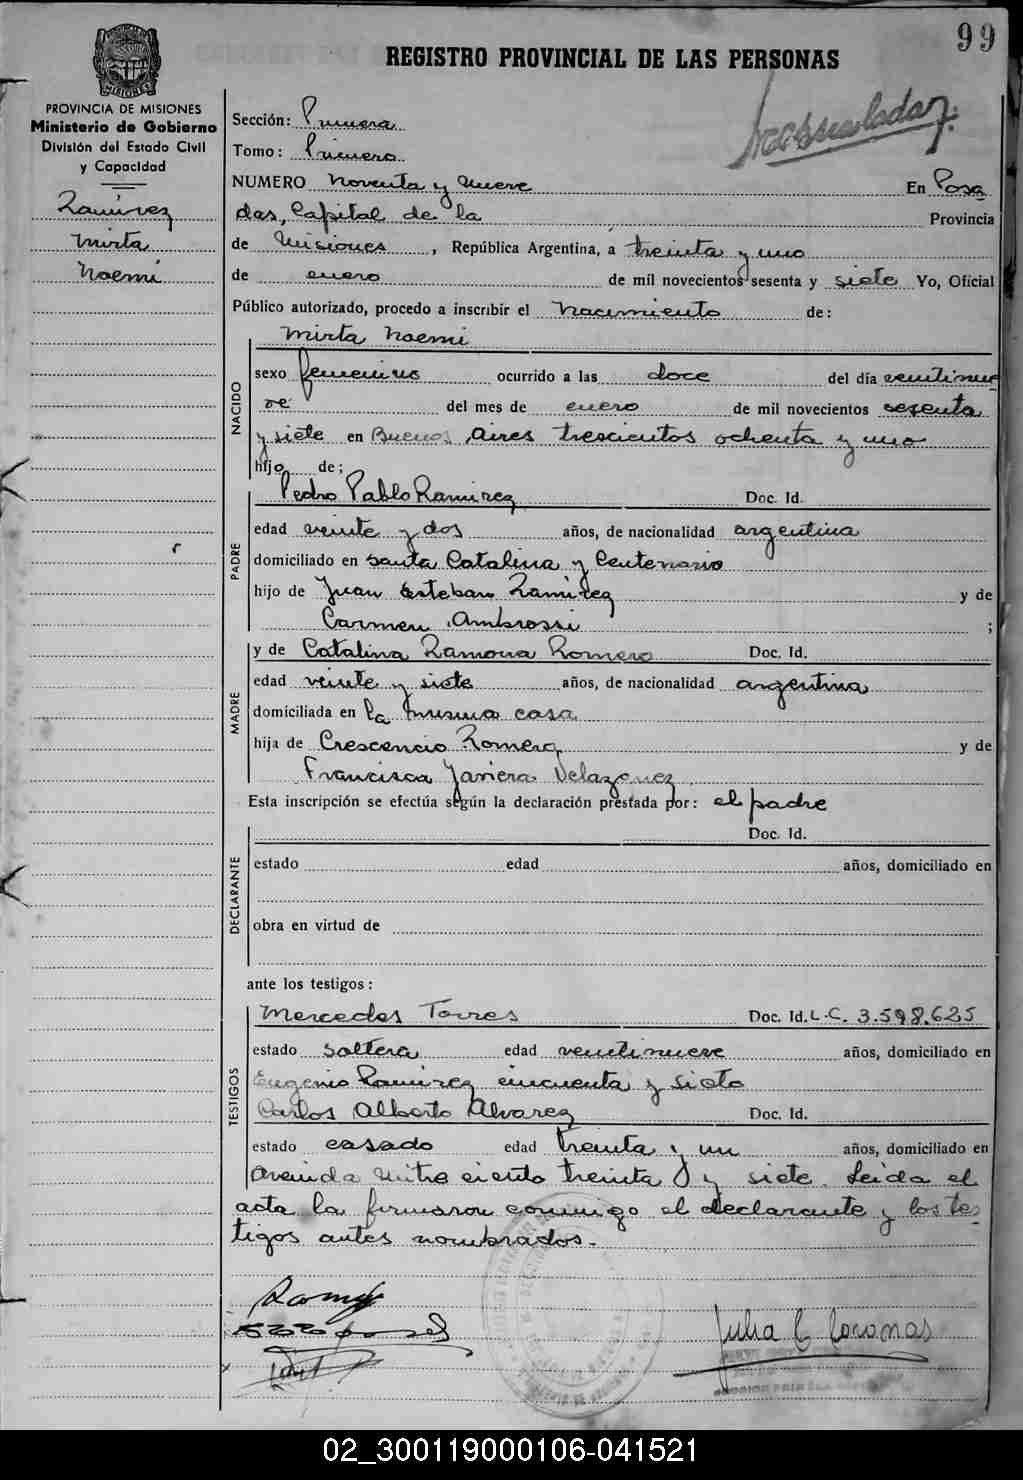 99
REGISTRO PROVINCIAL DE LAS PERSONAS
MISIONES
PROVINCIA DE MISIONES
Ministerio de Gobierno
División del Estado Civil
y Capacidad
Ramírez
Mirta
Noemí
Sección: Primera
Tomo: Primero
NUMERO Noventa y Nueve En Posa
das, Capital de la Provincia
de Misiones, República Argentina, a treinta y uno
de enero de mil novecientos sesenta y siete Yo, Oficial
Público autorizado, procedo a inscribir el Nacimiento de:
NACIDO
Mirta Noemi
sexo femenino ocurrido a las doce del día veintinue
ve del mes de enero de mil novecientos sesenta
y siete en Buenos Aires trescientos ochenta y uno
hijo de;
PADRE
Pedro Pablo Ramirez Doc. Id.
edad veinte y dos años, de nacionalidad argentina
domiciliado en Santa Catalina y Centenario
hijo de Juan Esteban Ramirez y de
Carmen Ambrossi ;
MADRE
y de Catalina Ramona Romero Doc. Id.
edad veinte y siete años, de nacionalidad argentina
domiciliada en la misma casa
hija de Crescencio Romero y de
Francisca Javiera Velazquez
Esta inscripción se efectúa según la declaración prestada por: el padre
DECLARANTE
Doc. Id.
estado edad años, domiciliado en
obra en virtud de
ante los testigos:
TESTIGOS
Mercedes Torres Doc. Id. L.C. 3.598.625
estado soltera edad veintinueve años, domiciliado en
Eugenio Ramirez cincuenta y siete
Carlos Alberto Alvarez Doc. Id.
estado casado edad treinta y un años, domiciliado en
Avenida Mitre ciento treinta y siete. Leida el
acta la firmaron conmigo el declarante y los tes
tigos antes nombrados.-
Julia C
02_300119000106-041521